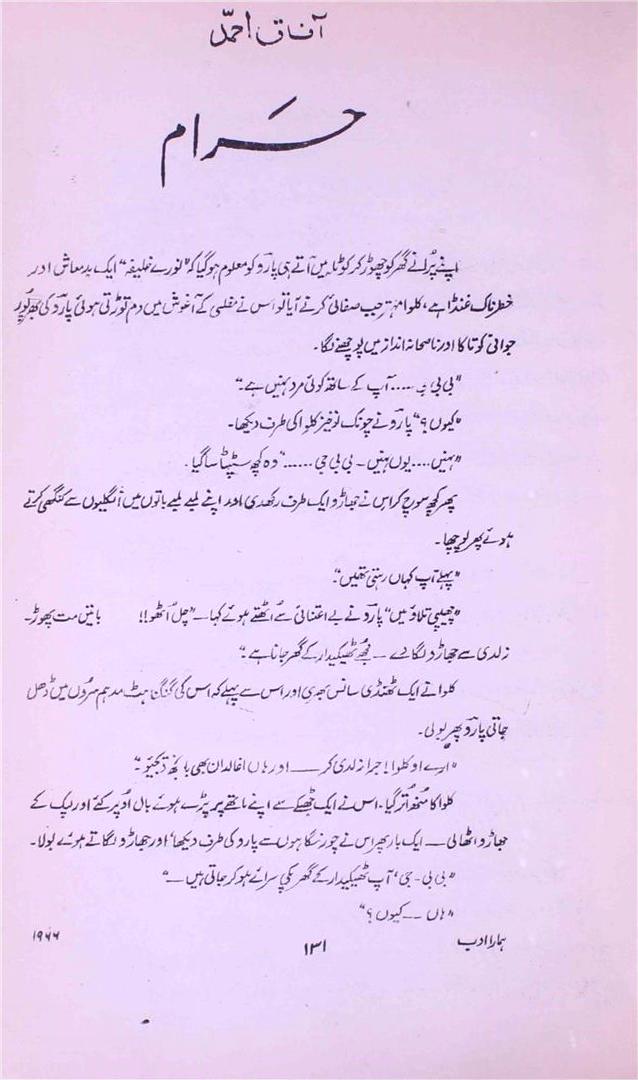 آفاق احمد
حرام
اپنے پُرانے گھر کو چھوڑ کر کوٹا میں آتے ہی پارو کو معلوم ہو گیا کہ "نورے خلیفہ" ایک بدمعاش اور
خطرناک غنڈا ہے، کلوا مہتر جب صفائی کرنے آیا تو اس نے مفلسی کے آغوش میں دم توڑتی ہوئی پارو کی بھرپور
جوانی کو تاکا اور ناصحانہ انداز میں پوچھنے لگا۔
"بی بی ..... آپ کے ساتھ کوئی مرد نہیں ہے۔"
"کیوں؟" پارو نے چونک کر کلوا کی طرف دیکھا۔
"نہیں .... یوں نہیں - بی بی جی ......" وہ کچھ سٹپٹا سا گیا۔
پھر کچھ سوچ کر اس نے جھاڑو ایک طرف رکھدی اور اپنے لمبے لمبے بالوں میں اُنگلیوں سے کنگھی کرتے
ہوئے پھر پوچھا۔
"پہلے آپ کہاں رہتی تھیں"۔
"چھیپی تلاؤ میں" پارو نے بے اعتنائی سے اُٹھتے ہوئے کہا — "چل اُٹھو!! باتیں مت پھوڑ۔
زلدی سے جھاڑو لگا دے — مجھے ٹھیکیدار کے گھر جانا ہے۔"
کلوا نے ایک ٹھنڈی سانس بھری اور اس سے پہلے کہ اس کی گنگناہٹ مدہم سروں میں ڈھل
جاتی پارو پھر بولی۔
"ارے او کلوا! جرا زلدی کر — اور ہاں اغالدان بھی مانجھ دیجیو۔"
کلوا کا منھ اُتر گیا۔ اس نے ایک جھٹکے سے اپنے ماتھے پر پڑے ہوئے بال اوپر کئے اور لپک کے
جھاڑو اٹھالی — ایک بار پھر اس نے چور نگاہوں سے پارو کی طرف دیکھا' اور جھاڑو لگاتے ہوئے بولا۔
"بی بی - جی' آپ ٹھیکیدار کے گھر پکی سرائے ہو کر جاتی ہیں —"
"ہاں — کیوں؟"
ہمارا ادب
۱۳۱
۱۹۶۶